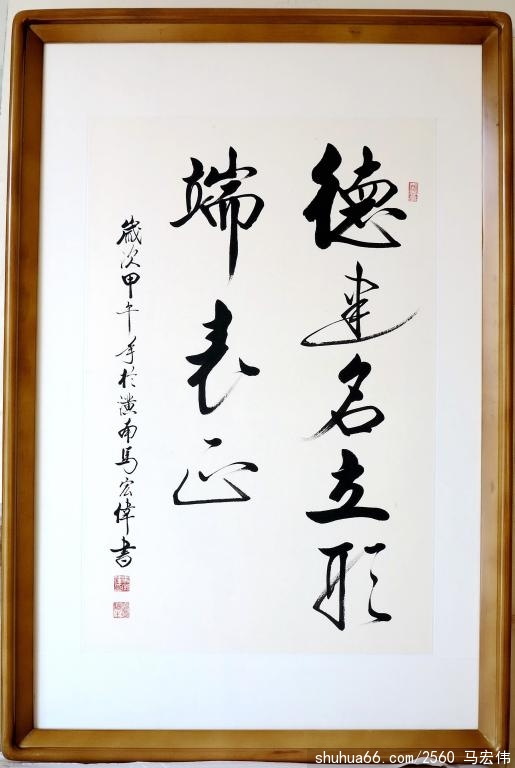 德建名立形
端表正
歲次甲午年於潢南馬宏偉書
shuhua66.com/2560 马宏伟